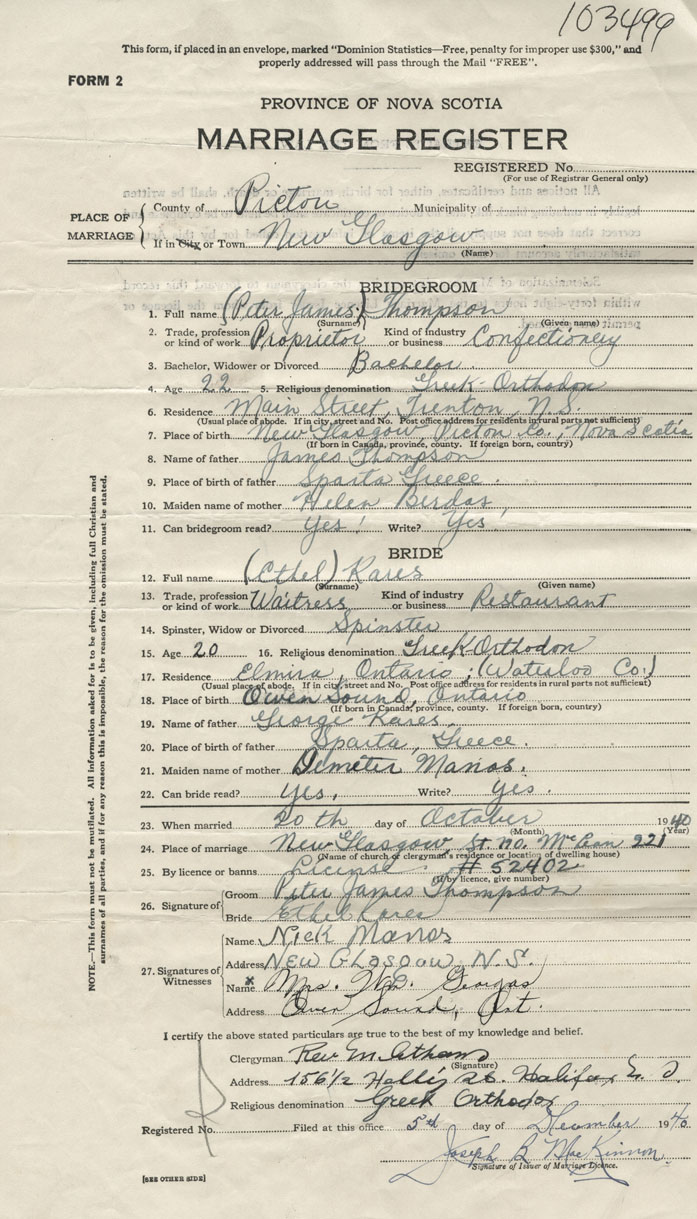 103499
This form, if placed in an envelope, marked "Dominion Statistics—Free, penalty for improper use $300," and
properly addressed will pass through the Mail "FREE".
FORM 2
PROVINCE OF NOVA SCOTIA
MARRIAGE REGISTER
REGISTERED No.
(For use of Registrar General only)
PLACE OF MARRIAGE
County of Pictou Municipality of
If in City or Town New Glasgow
(Name)
BRIDEGROOM
1. Full name (Peter James) Thompson
(Surname) (Given name)
2. Trade, profession or kind of work Proprietor Kind of industry or business Confectionery
3. Bachelor, Widower or Divorced Bachelor
4. Age 22 5. Religious denomination Greek-Orthodox
6. Residence Main Street, Trenton, N.S.
(Usual place of abode. If in city, street and No. Post office address for residents in rural parts not sufficient)
7. Place of birth New Glasgow, Pictou Co., Nova Scotia
(If born in Canada, province, county. If foreign born, country)
8. Name of father James Thompson
9. Place of birth of father Sparta Greece.
10. Maiden name of mother Helen Berdas,
11. Can bridegroom read? Yes! Write? Yes
BRIDE
12. Full name (Ethel) Kares
(Surname) (Given name)
13. Trade, profession or kind of work Waitress Kind of industry or business Restaurant
14. Spinster, Widow or Divorced Spinster
15. Age 20 16. Religious denomination Greek-Orthodox
17. Residence Elmira, Ontario; (Waterloo Co.)
(Usual place of abode. If in city, street and No. Post office address for residents in rural parts not sufficient)
18. Place of birth Owen Sound, Ontario
(If born in Canada, province, county. If foreign born, country)
19. Name of father George Kares,
20. Place of birth of father Sparta, Greece.
21. Maiden name of mother Demeter Manos.
22. Can bride read? Yes, Write? Yes.
23. When married 20th day of October 1940
(Month) (Year)
24. Place of marriage New Glasgow, St. no. McLean 221
(Name of church or clergyman's residence or location of dwelling house)
25. By licence or banns License. # 52402
(If by licence, give number)
26. Signature of
Groom Peter James Thompson
Bride Ethel Kares
27. Signatures of Witnesses
Name Nick Manos
Address New Glasgow, N.S.
x Name Mrs. Wm. Georgas
Address Owen Sound, Ont.
I certify the above stated particulars are true to the best of my knowledge and belief.
Clergyman Rev
(Signature)
Address 156½ Hollis St. Halifax N.S.
Religious denomination Greek Orthodox
Registered No. Filed at this office 5th day of December 1940
Joseph B MacKinnon
Signature of Issuer of Marriage Licence.
[SEE OTHER SIDE]
NOTE.—This form must not be mutilated. All information asked for is to be given, including full Christian and
surnames of all parties, and if for any reason this is impossible, the reason for the omission must be stated.